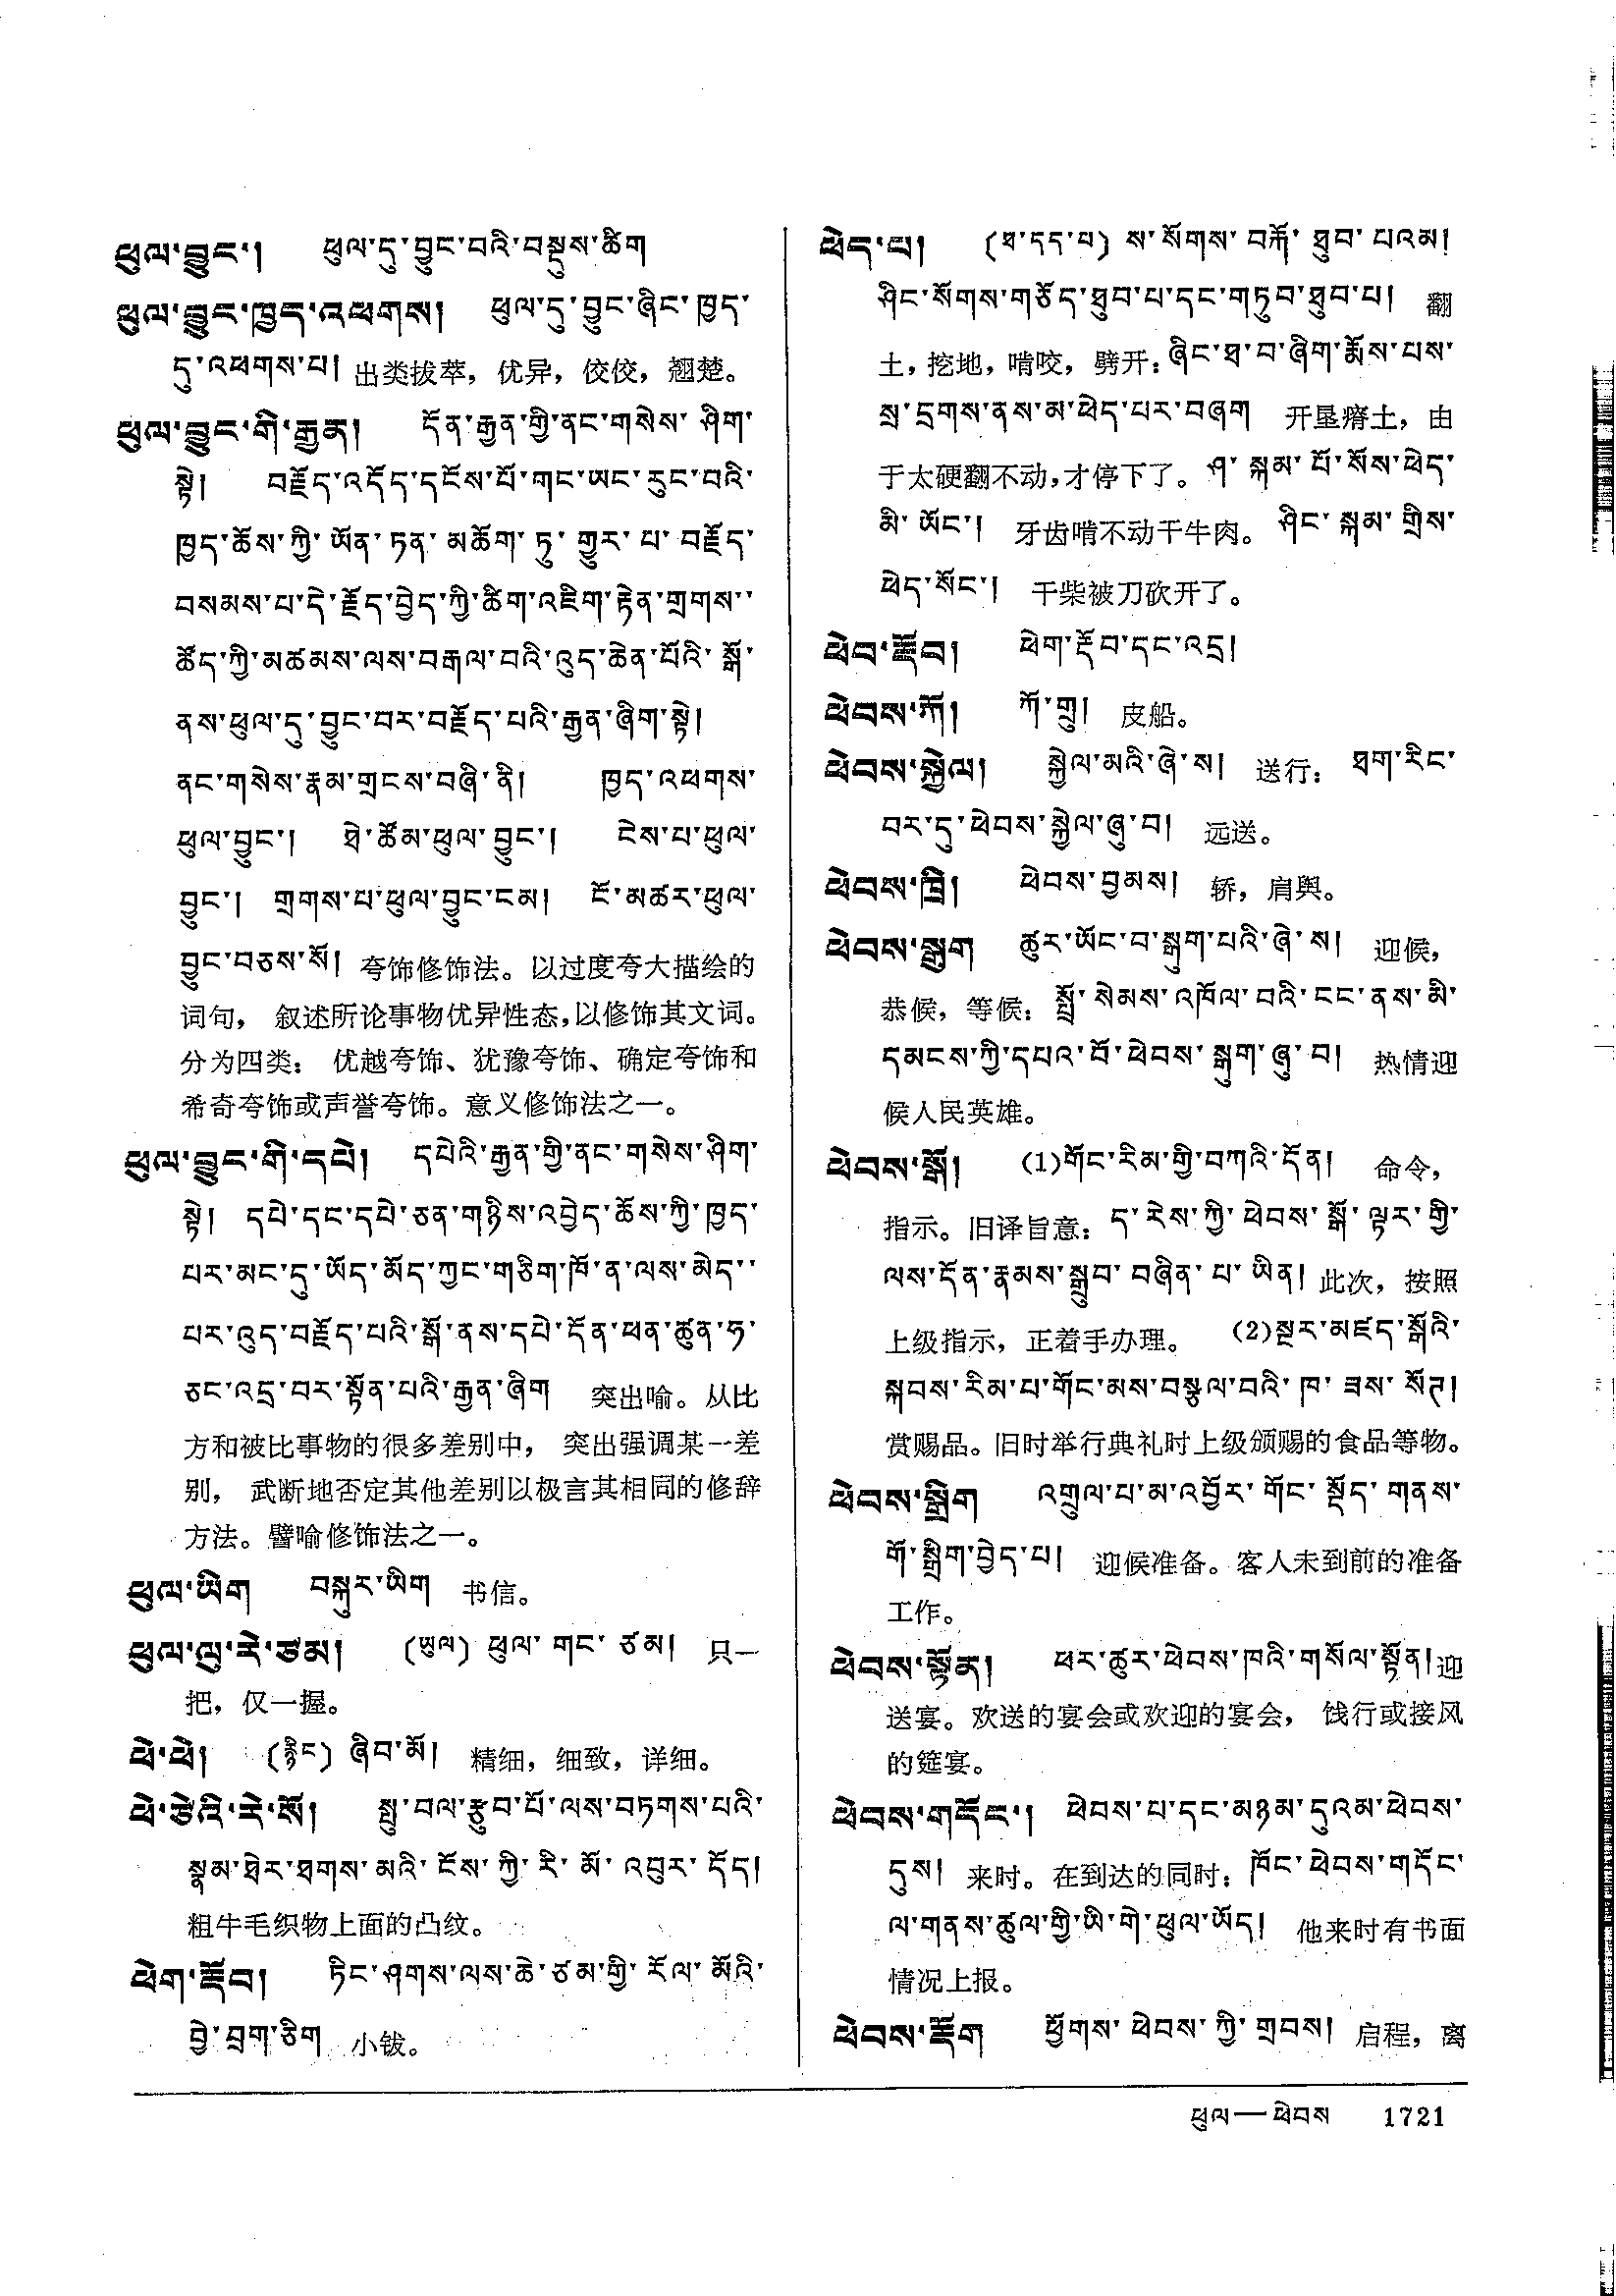 ཕུལ་བྱུང་། ཕུལ་དུ་བྱུང་བའི་བསྡུས་ཚིག
ཕུལ་བྱུང་ཁྱད་འཕགས། ཕུལ་དུ་བྱུང་ཞིང་ཁྱད་
དུ་འཕགས་པ། 出类拔萃，优异，佼佼，翘楚。
ཕུལ་བྱུང་གི་རྒྱན། དོན་རྒྱན་གྱི་ནང་གསེས་ཤིག་
སྟེ། བརྗོད་འདོད་དངོས་པོ་གང་ཡང་རུང་བའི་
ཁྱད་ཆོས་ཀྱི་ཡོན་ཏན་མཆོག་ཏུ་གྱུར་པ་བརྗོད་
བསམས་པ་དེ་རྗོད་བྱེད་ཀྱི་ཚིག་འཇིག་རྟེན་གྲགས་་
ཚོད་ཀྱི་མཚམས་ལས་བརྒལ་བའི་འུད་ཆེན་པོའི་སྒོ་
ནས་ཕུལ་དུ་བྱུང་བར་བརྗོད་པའི་རྒྱན་ཞིག་སྟེ།
ནང་གསེས་རྣམ་གྲངས་བཞི་ནི། ཁྱད་འཕགས་
ཕུལ་བྱུང་། ཐེ་ཚོམ་ཕུལ་བྱུང་། ངེས་པ་ཕུལ་
བྱུང་། གྲགས་པ་ཕུལ་བྱུང་ངམ། ངོ་མཚར་ཕུལ་
བྱུང་བཅས་སོ། 夸饰修饰法。以过度夸大描绘的
词句，叙述所论事物优异性态，以修饰其文词。
分为四类：优越夸饰、犹豫夸饰、确定夸饰和
希奇夸饰或声誉夸饰。意义修饰法之一。
ཕུལ་བྱུང་གི་དཔེ། དཔེའི་རྒྱན་གྱི་ནང་གསེས་ཤིག་
སྟེ། དཔེ་དང་དཔེ་ཅན་གཉིས་འབྱེད་ཆོས་ཀྱི་ཁྱད་
པར་མང་དུ་ཡོད་མོད་ཀྱང་གཅིག་ཁོ་ན་ལས་མེད་་
པར་འུད་བརྗོད་པའི་སྒོ་ནས་དཔེ་དོན་ཕན་ཚུན་ཧ་
ཅང་འདྲ་བར་སྟོན་པའི་རྒྱན་ཞིག 突出喻。从比
方和被比事物的很多差别中，突出强调某一差
别，武断地否定其他差别以极言其相同的修辞
方法。譬喻修饰法之一。
ཕུལ་ཡིག བསྐུར་ཡིག 书信。
ཕུལ་ལུ་རེ་ཙམ། (ཡུལ) ཕུལ་གང་ཙམ། 只一
把，仅一握。
ཕེ་ཕེ། (རྙིང) ཞིབ་མོ། 精细，细致，详细。
ཕེ་ཙེའི་རེ་སོ། སྤུ་བལ་རྩུབ་པོ་ལས་བཏགས་པའི་
སྣམ་ཐེར་ཐགས་མའི་ངོས་ཀྱི་རི་མོ་འབུར་དོད།
粗牛毛织物上面的凸纹。
ཕེག་རྡོབ། ཏིང་ཤགས་ལས་ཆེ་ཙམ་གྱི་རོལ་མོའི་
བྱེ་བྲག་ཅིག 小钹。
ཕེད་པ། (ཐ་དད་པ) ས་སོགས་བརྐོ་ཐུབ་པའམ།
ཤིང་སོགས་གཅོད་ཐུབ་པ་དང་གཏུབ་ཐུབ་པ། 翻
土，挖地，啃咬，劈开：ཞིང་ཐ་བ་ཞིག་རྨོས་པས་
སྲ་དྲགས་ནས་མ་ཕེད་པར་བཞག 开垦瘠土，由
于太硬翻不动，才停下了。ཤ་སྐམ་པོ་སོས་ཕེད་
མི་ཡོང་། 牙齿啃不动干牛肉。ཤིང་སྐམ་གྲིས་
ཕེད་སོང་། 干柴被刀砍开了。
ཕེབ་རྡོབ། ཕེག་རྡོབ་དང་འདྲ།
ཕེབས་ཀོ། ཀོ་གྲུ། 皮船。
ཕེབས་སྐྱེལ། སྐྱེལ་མའི་ཞེ་ས། 送行：ཐག་རིང་
བར་དུ་ཕེབས་སྐྱེལ་ཞུ་བ། 远送。
ཕེབས་ཁྲི། ཕེབས་བྱམས། 轿，肩舆。
ཕེབས་སྒུག ཚུར་ཡོང་བ་སྒུག་པའི་ཞེ་ས། 迎候，
恭候，等候：སྤྲོ་སེམས་འཁོལ་བའི་ངང་ནས་མི་
དམངས་ཀྱི་དཔའ་བོ་ཕེབས་སྒུག་ཞུ་བ། 热情迎
候人民英雄。
ཕེབས་སྒོ། (1)གོང་རིམ་གྱི་བཀའི་དོན། 命令，
指示。旧译旨意：ད་རེས་ཀྱི་ཕེབས་སྒོ་ལྟར་གྱི་
ལས་དོན་རྣམས་སྒྲུབ་བཞིན་པ་ཡིན། 此次，按照
上级指示，正着手办理。 (2)སྔར་མཛད་སྒོའི་
སྐབས་རིམ་པ་གོང་མས་བསྩལ་བའི་ཁ་ཟས་སོཊ།
赏赐品。旧时举行典礼时上级颁赐的食品等物。
ཕེབས་སྒྲིག འགྲུལ་པ་མ་འབྱོར་གོང་སྡོད་གནས་
གོ་སྒྲིག་བྱེད་པ། 迎候准备。客人未到前的准备
工作。
ཕེབས་སྟོན། ཕར་ཚུར་ཕེབས་ཁའི་གསོལ་སྟོན།迎
送宴。欢送的宴会或欢迎的宴会，饯行或接风
的筵宴。
ཕེབས་གདོང་། ཕེབས་པ་དང་མཉམ་དུའམ་ཕེབས་
དུས། 来时。在到达的同时：ཁོང་ཕེབས་གདོང་
ལ་གནས་ཚུལ་གྱི་ཡི་གེ་ཕུལ་ཡོད། 他来时有书面
情况上报。
ཕེབས་རྫོག ཕྱོགས་ཕེབས་ཀྱི་གྲབས། 启程，离
ཕུལ—ཕེབས 1721